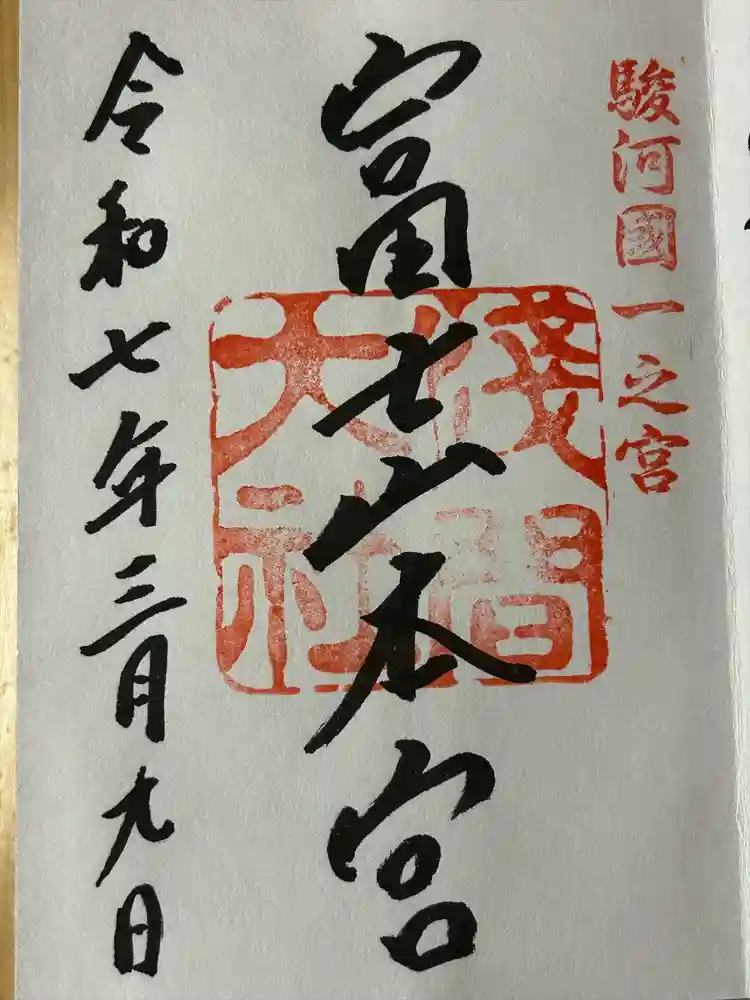 駿河國一之宮
富士山本宮
淺間
大社
令和七年三月九日